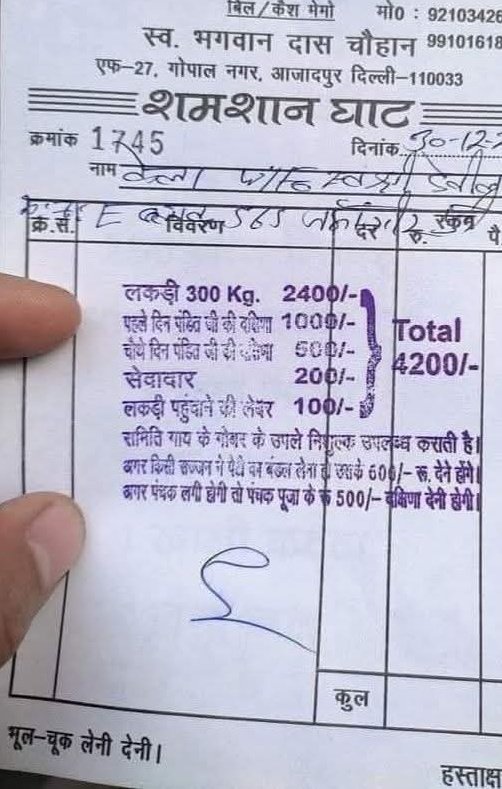 बिल/कैश मेमो मो0 : 92103426
स्व. भगवान दास चौहान 99101618
एफ-27, गोपाल नगर, आजादपुर दिल्ली-110033
शमशान घाट
क्रमांक 1745 दिनांक 30-12-
नाम
क्र.सं. विवरण दर रकम रु. पै
लकड़ी 300 Kg. 2400/-
पहले दिन पंडित जी की दक्षिणा 1000/-
चौथे दिन पंडित जी की दक्षिणा 500/-
सेवादार 200/-
लकड़ी पहुंचाने की लेबर 100/-
Total
4200/-
समिति गाय के गोबर के उपले निशुल्क उपलब्ध कराती है।
अगर किसी सज्जन ने बंडल लेना हो उसके 600/- रू. देने होंगे।
अगर पंचक लगी होगी तो पंचक पूजा के रू 500/- दक्षिणा देनी होगी।
कुल
भूल-चूक लेनी देनी।
हस्ताक्ष